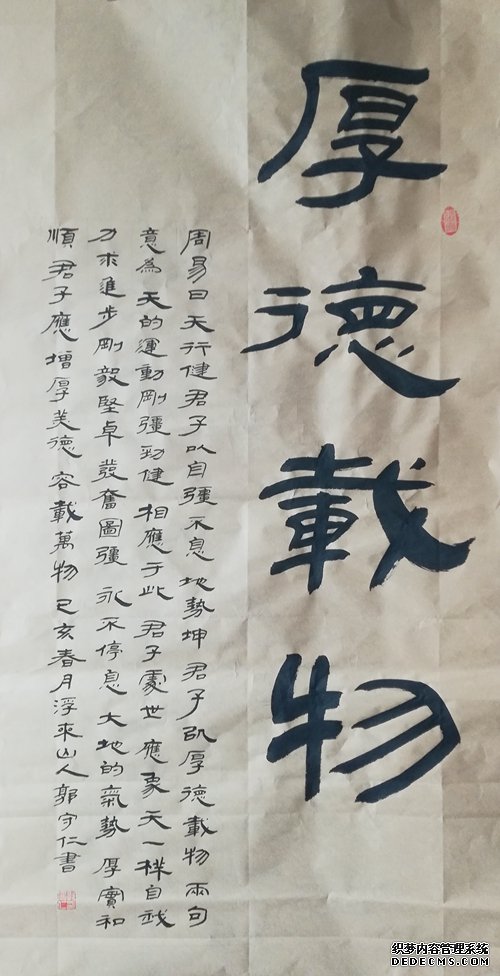 厚德載物
周易曰天行健君子以自彊不息地勢坤君子以厚德載物兩句
意為天的運動剛彊勁健相應于此君子處世應象天一樣自我
力求進步剛毅堅卓發奮圖彊永不停息大地的氣勢厚實和
順君子應增厚美德容載萬物己亥春月浮來山人郭守仁書
织梦内容管理系统
DEDECMS.COM